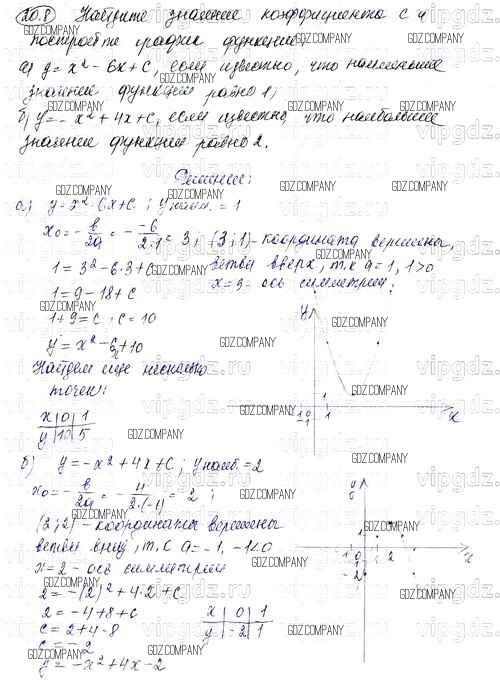 20.8 Найдите значение коэффициента c и
постройте график функции:
а) y = x² - 6x + c, если известно, что наименьшее
значение функции равно 1;
б) y = -x² + 4x + c, если известно, что наибольшее
значение функции равно 2.
Решение:
а) y = x² - 6x + c ; y наим. = 1
x₀ = - b/2a = - -6/2·1 = 3; (3;1) - координата вершины,
1 = 3² - 6·3 + c ветви вверх, т.к a = 1, 1>0
1 = 9 - 18 + c x = 3 - ось симметрии;
1 + 9 = c ; c = 10
y = x² - 6x + 10
Найдем еще несколько
точек:
x | 0 | 1
y | 10 | 5
y
1
1 0 1
-1
x
б) y = -x² + 4x + c ; y наиб. = 2
x₀ = - b/2a = - 4/2·(-1) = 2 ;
(2;2) - координаты вершины
ветви вниз, т.к a = -1, -1<0
x = 2 - ось симметрии
2 = -(2)² + 4·2 + c
2 = -4 + 8 + c
c = 2 + 4 - 8
c = -2
y = -x² + 4x - 2
x | 0 | 1
y | -2 | 1
1
-1 1 2 x
-1
-2
GDZ.COMPANY
vipgdz.ru